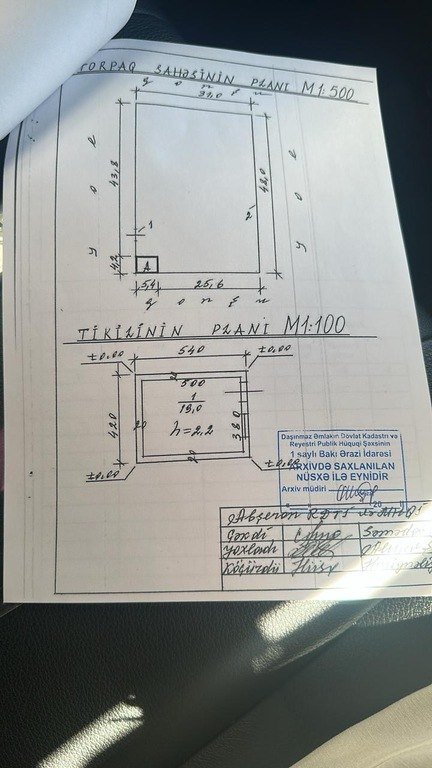 TORPAQ SAHƏSİNİN PLANI M1:500
31,0
q o n ş u
43,8
y o l
48,0
y o l
1
2
4,2
A
5,4
25,6
q o n ş u
TİKİLİNİN PLANI M1:100
±0,00
540
±0,00
20
500
1
19,0
420
20
h=2,2
380
20
±0,00
±0,00
Daşınmaz Əmlakın Dövlət Kadastrı və
Reyestri Publik Hüquqi Şəxsinin
1 saylı Bakı Ərazi İdarəsi
ARXİVDƏ SAXLANILAN
NÜSXƏ İLƏ EYNİDİR
Arxiv müdiri
20
Abşeron
Çəkdi
Yoxladı
Köçürdü